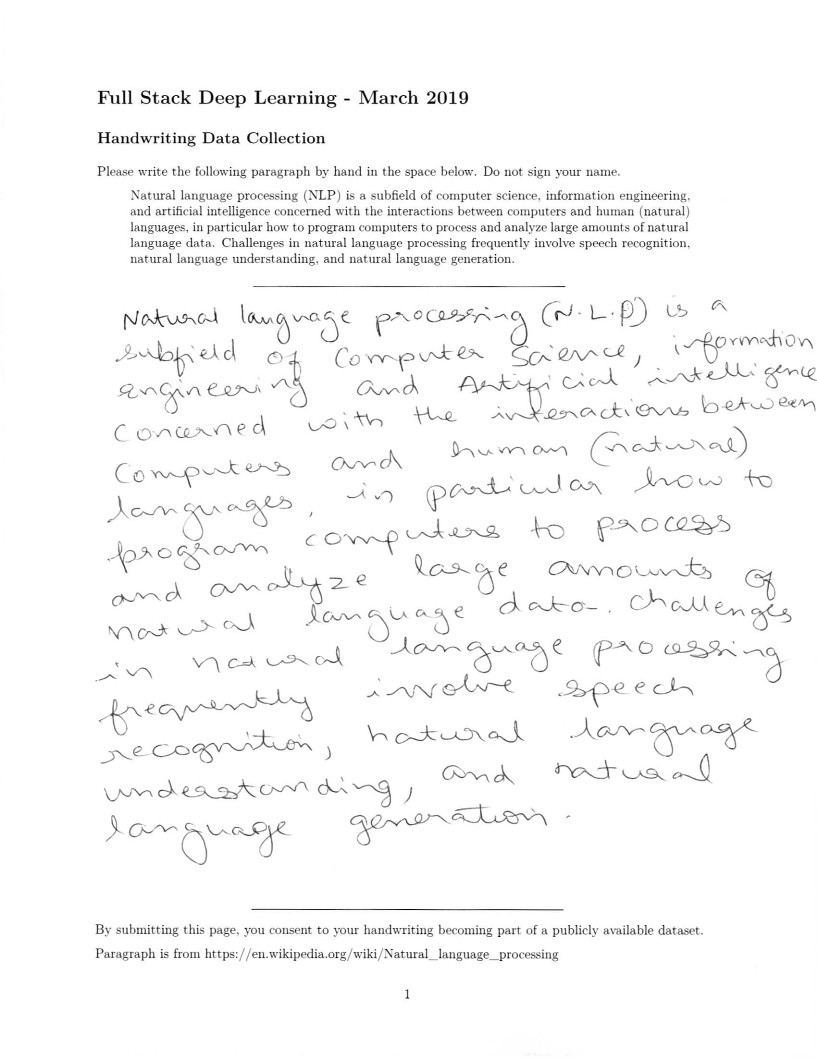 Full Stack Deep Learning - March 2019
Handwriting Data Collection
Please write the following paragraph by hand in the space below. Do not sign your name.
Natural language processing (NLP) is a subfield of computer science, information engineering,
and artificial intelligence concerned with the interactions between computers and human (natural)
languages, in particular how to program computers to process and analyze large amounts of natural
language data. Challenges in natural language processing frequently involve speech recognition,
natural language understanding, and natural language generation.
Natural language processing (N.L.P) is a
subfield of Computer Science, information
engineering and Artificial intelligence
Concerned with the interactions between
Computers and human (natural)
languages, in particular how to
program computers to process
and analyze large amounts of
natural language data. Challenges
in natural language processing
frequently involve speech
recognition, natural language
understanding, and natural
language generation.
By submitting this page, you consent to your handwriting becoming part of a publicly available dataset.
Paragraph is from https://en.wikipedia.org/wiki/Natural_language_processing
1